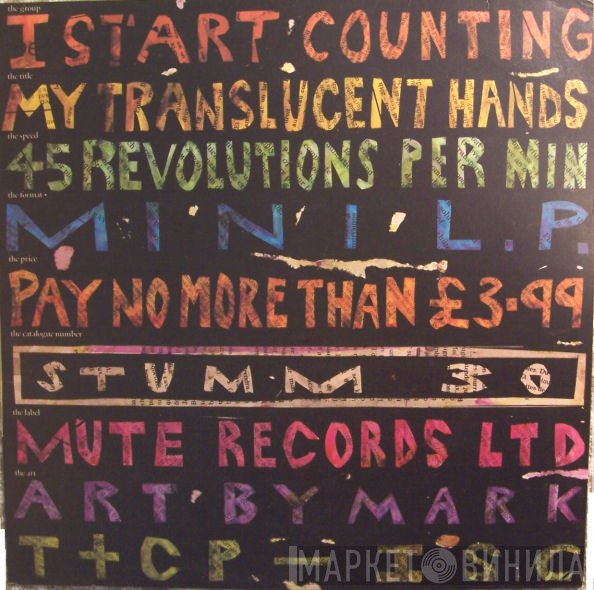 the group
I START COUNTING
the title
MY TRANSLUCENT HANDS
the speed
45 REVOLUTIONS PER MIN
the format •
MINI L.P.
the price
PAY NO MORE THAN £3·99
the catalogue number
STUMM 30
the label
MUTE RECORDS LTD
the art
ART BY MARK
T + C P +
МАРКЕТ ВИНИЛА